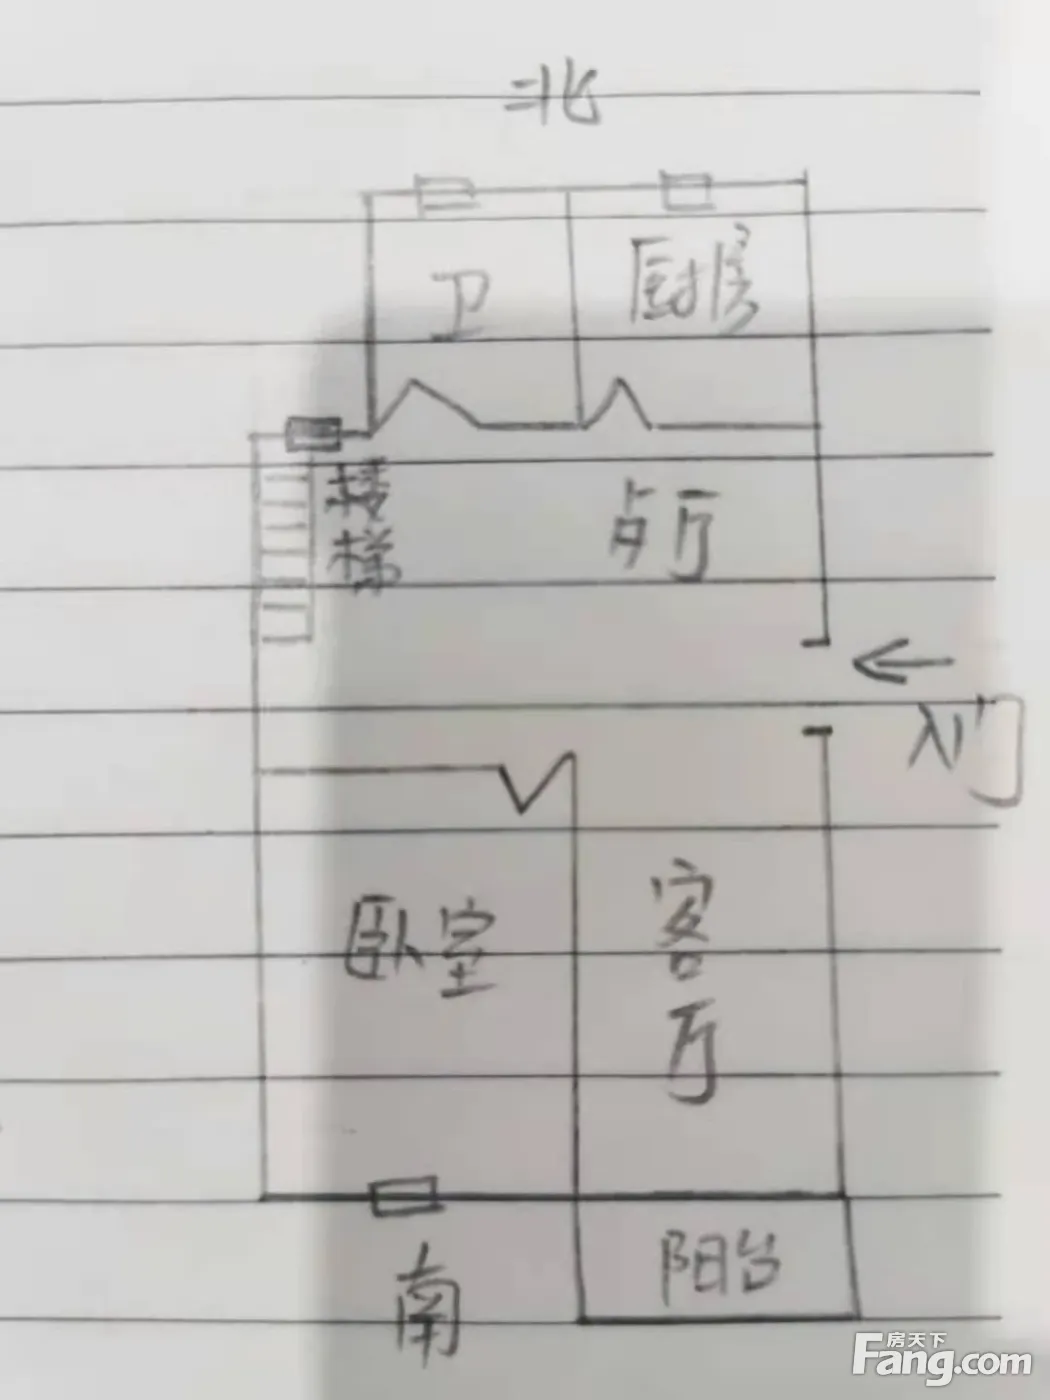 北
卫
厨房
楼梯
占厅
入门
卧室
客厅
阳台
南
房天下
Fang.com